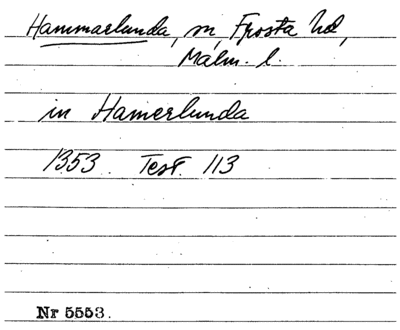 Hammarlunda, sn, Frosta hd,
Malm. l.
in Hamerlunda
1353. Test. 113
Nr 5553.